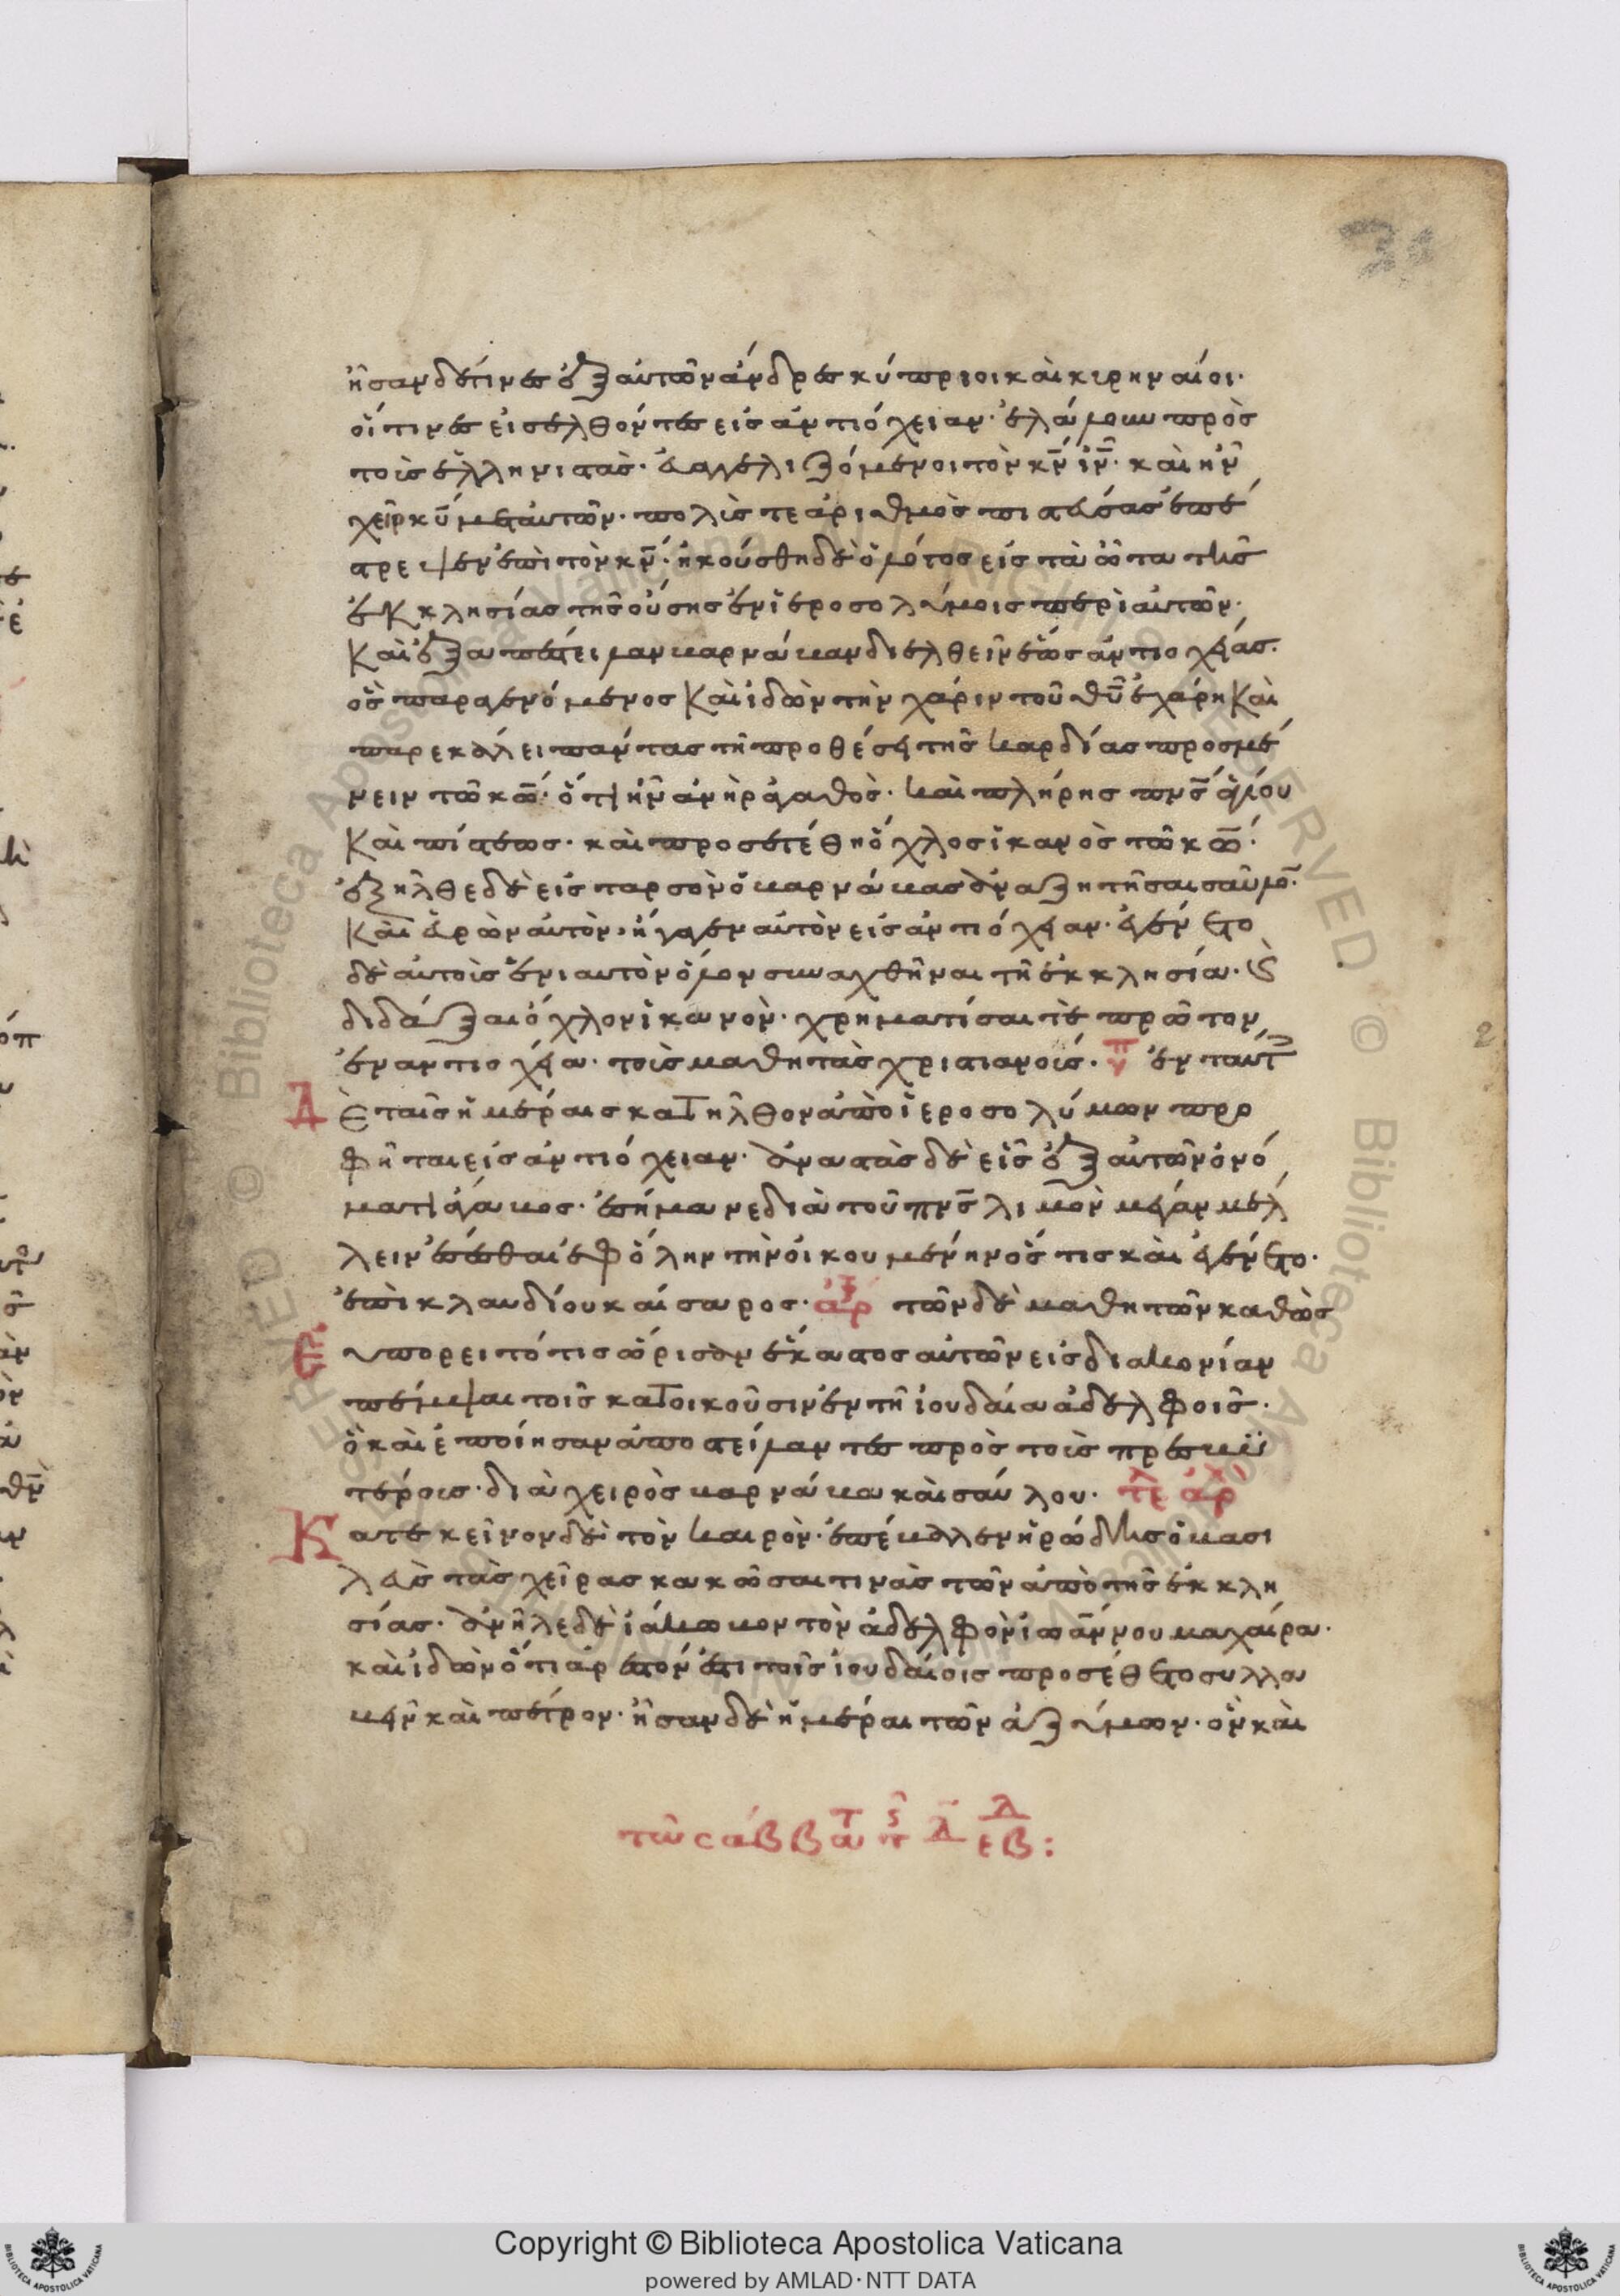 30
ἦσαν δέ τινες ἐξ αὐτῶν ἄνδρες κύπριοι καὶ κυρηναίοι·
οἵτινες εἰσελθόντες εἰς ἀντιόχειαν· ἐλάλουν πρὸς
τοὺς ἑλληνιστὰς· εὐαγγελιζόμενοι τὸν κν̄ ιν̄· καὶ ἦν
χεὶρ κῡ μετ αὐτῶν· πολὺς τε ἀριθμὸς πιστεύσας ἐπέ
στρεψεν ἐπὶ τὸν κν̄· ἠκούσθη δὲ ὁ λόγος εἰς τὰ ὦτα τῆς
ἐκκλησίας τῆς οὔσης ἐν ἱεροσολύμοις περὶ αὐτῶν·
καὶ ἐξαπέστειλαν βαρνάβαν διελθεῖν ἕως ἀντιοχείας·
ὃς παραγενόμενος καὶ ἰδὼν τὴν χάριν τοῦ θῡ ἐχάρη καὶ
παρεκάλει πάντας τῇ προθέσει τῆς καρδίας προσμέ
νειν τῶ κω̄· ὅτι ἦν ἀνὴρ ἀγαθὸς· καὶ πλήρης πνς̄ ἁγίου
καὶ πίστεως· καὶ προσετέθη ὄχλος ἱκανὸς τῶ κω̄·
ἐξῆλθε δὲ εἰς ταρσὸν ὁ βαρνάβας ἀναζητῆσαι σαῦλο̄·
καὶ εὑρὼν αὐτὸν· ἤγαγεν αὐτὸν εἰς ἀντιόχειαν· ἐγένετο
δὲ αὐτοὺς ἐνιαυτὸν ὅλον συναχθῆναι τῇ ἐκκλησία· ϗ
διδάξαι ὄχλον ἱκανὸν· χρηματίσαι τὲ πρῶτον
ἐν αντιοχεία· τοὺς μαθητὰς χριστιανούς· ἐν ταύτ
Δ ὲ ταῖς ἡμέραις κατῆλθον ἀπὸ ἱεροσολύμων προ
φῆται εἰς ἀντιόχειαν· ἀναστὰς δὲ εἷς ἐξ αὐτῶν ὀνό
ματι ἄγαβος· ἐσήμανε διὰ τοῦ πνς̄ λιμὸν μέγαν μέλ
λειν ἔσεσθαι ἐφ ὅλην τὴν οἰκουμένην ὅστις καὶ ἐγένετο·
ἐπὶ κλαυδίου καίσαρος· ἀρ τῶν δὲ μαθητῶν καθὼς
Ε ὐπορεῖτό τις ὥρισαν ἕκαστος αὐτῶν εἰς διακονίαν
πέμψαι τοῖς κατοικοῦσιν ἐν τῇ ἰουδαία ἀδελφοῖς·
ὃ καὶ ἐποίησαν ἀποστείλαντες πρὸς τοὺς πρεσβυ
τέρους· διὰ χειρὸς βαρνάβα καὶ σαύλου· τε ἀρ
Κ ατ ἐκεῖνον δὲ τὸν καιρὸν· ἐπέβαλεν ἡρώδης ὁ βασι
λεὺς τὰς χεῖρας κακῶσαι τινὰς τῶν ἀπὸ τῆς ἐκκλη
σίας· ἀνεῖλε δὲ ἰάκωβον τὸν ἀδελφὸν ἰωάννου μαχαίρα·
καὶ ἰδὼν ὅτι ἀρεστόν ἐστι τοῖς ἰουδαίοις προσέθετο συλλα
βεῖν καὶ πέτρον· ἦσαν δὲ ἡμέραι τῶν ἀζύμων· ὃν καὶ
τῶ σαββάτ
Copyright © Biblioteca Apostolica Vaticana
powered by AMLAD·NTT DATA